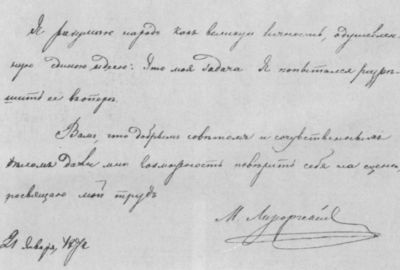 Я разумѣю народъ какъ великую личность, одушевлен-
ную единою идеею. Это моя задача. Я попытался разрѣ-
шить ее въ оперѣ.
Вамъ, что добрымъ совѣтомъ и сочувственнымъ
дѣломъ дали мнѣ возможность повѣрить себя на сценѣ,
посвящаю мой трудъ
М. Мусоргскiй
21 Января, 1874